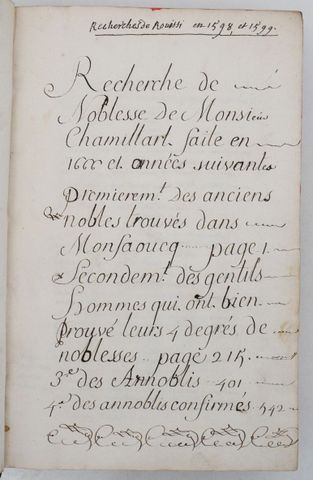 Recherches de Roissi en 1598, et 1599.
Recherche de
Noblesse de Monsieur
Chamillart faite en
et années suivantes
premierem.t des anciens
nobles trouvés dans
Monfaoucq page 1.
Secondem.t des gentils
hommes qui ont bien
prouvé leurs 4 degrés de
noblesses page 215
3.e des Annoblis 401
4.e des annoblis confirmés 542